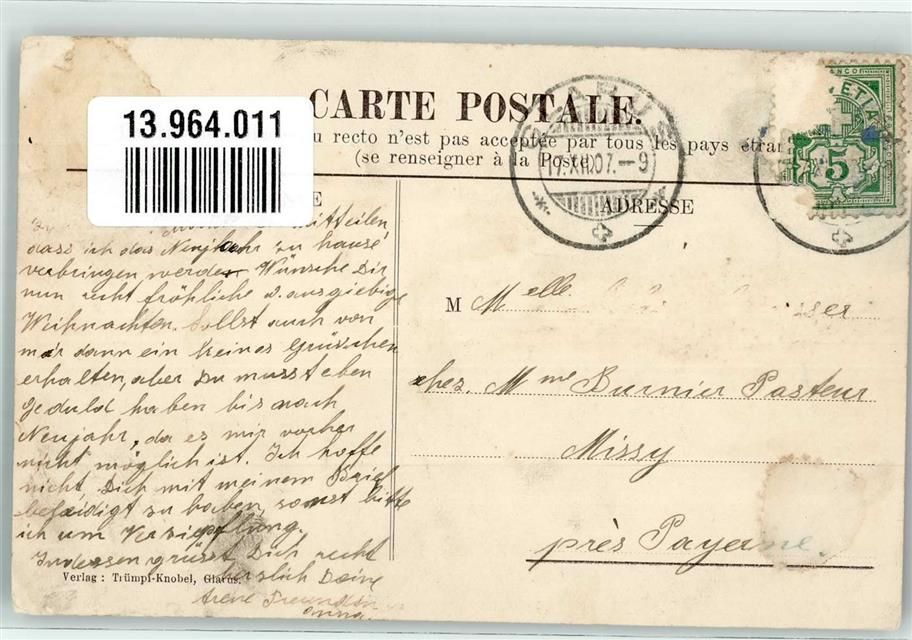 13.964.011
CARTE POSTALE.
u recto n'est pas acceptée par tous les pays étran
(se renseigner à la Poste)
ADRESSE
GLARUS
19.XII.07.-9
FRANCO
HELVETIA
5
mitteilen,
dass ich das Neujahr zu hause
verbringen werde. Wünsche Dir
nun recht fröhliche u. ausgiebige
Weihnachten. Sollst auch von
mir dann ein kleines Grüsschen
erhalten, aber Du musst eben
Geduld haben bis nach
Neujahr, da es mir vorher
nicht möglich ist. Ich hoffe
nicht, Dich mit meinem Brief
beleidigt zu haben, sonst bitte
ich um Verzeihung.
Indessen grüsst Dich recht
herzlich Deine
Freundin
Anna.
M Melle. ser
chez. Mme Burnier Pasteur
Missy
près Payerne.
Verlag : Trümpi-Knobel, Glarus.